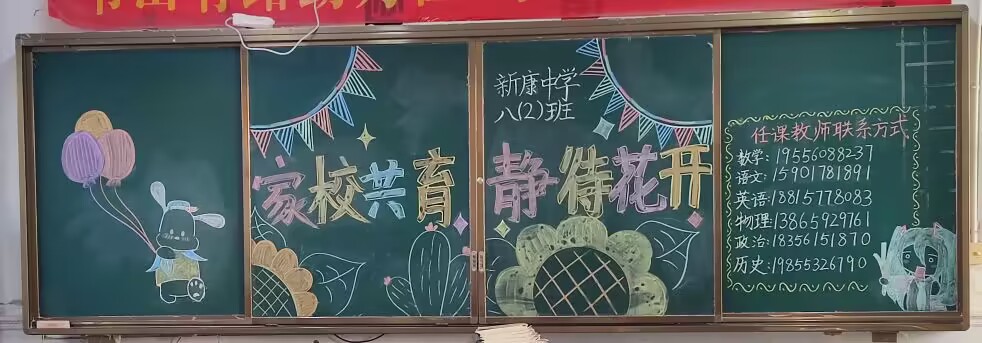 家校共育 静待花开
新康中学
八(2)班
任课教师联系方式
数学:19556088237
语文:15901781891
英语:18815778083
物理13865929761
政治:18356151870
历史:19855326790